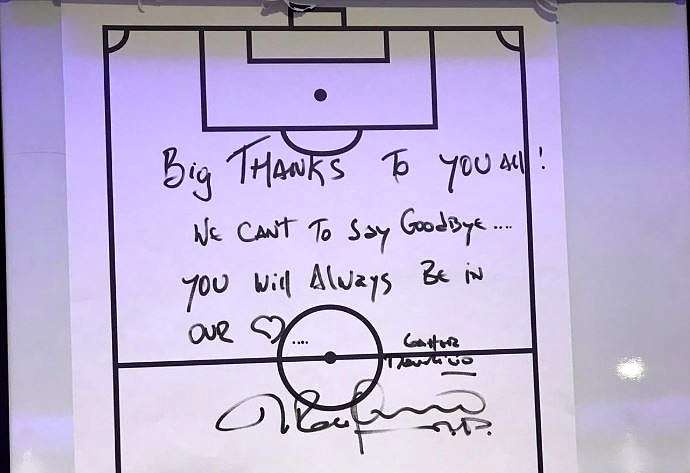 Big THANKS To YOU All!
WE CANT To SAy GoodByE....
YOU Will Always BE in
OUR ♡....